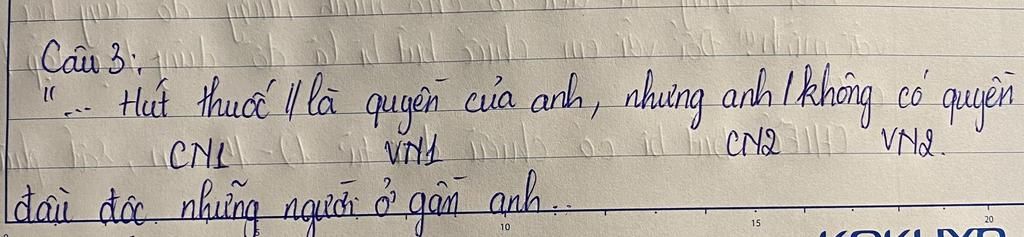 Câu 3:
"... Hút thuốc // là quyền của anh, nhưng anh / không có quyền
CN1 VN1 CN2 VN2.
đầu độc những người ở gần anh...
10 15 20
KOKUYO